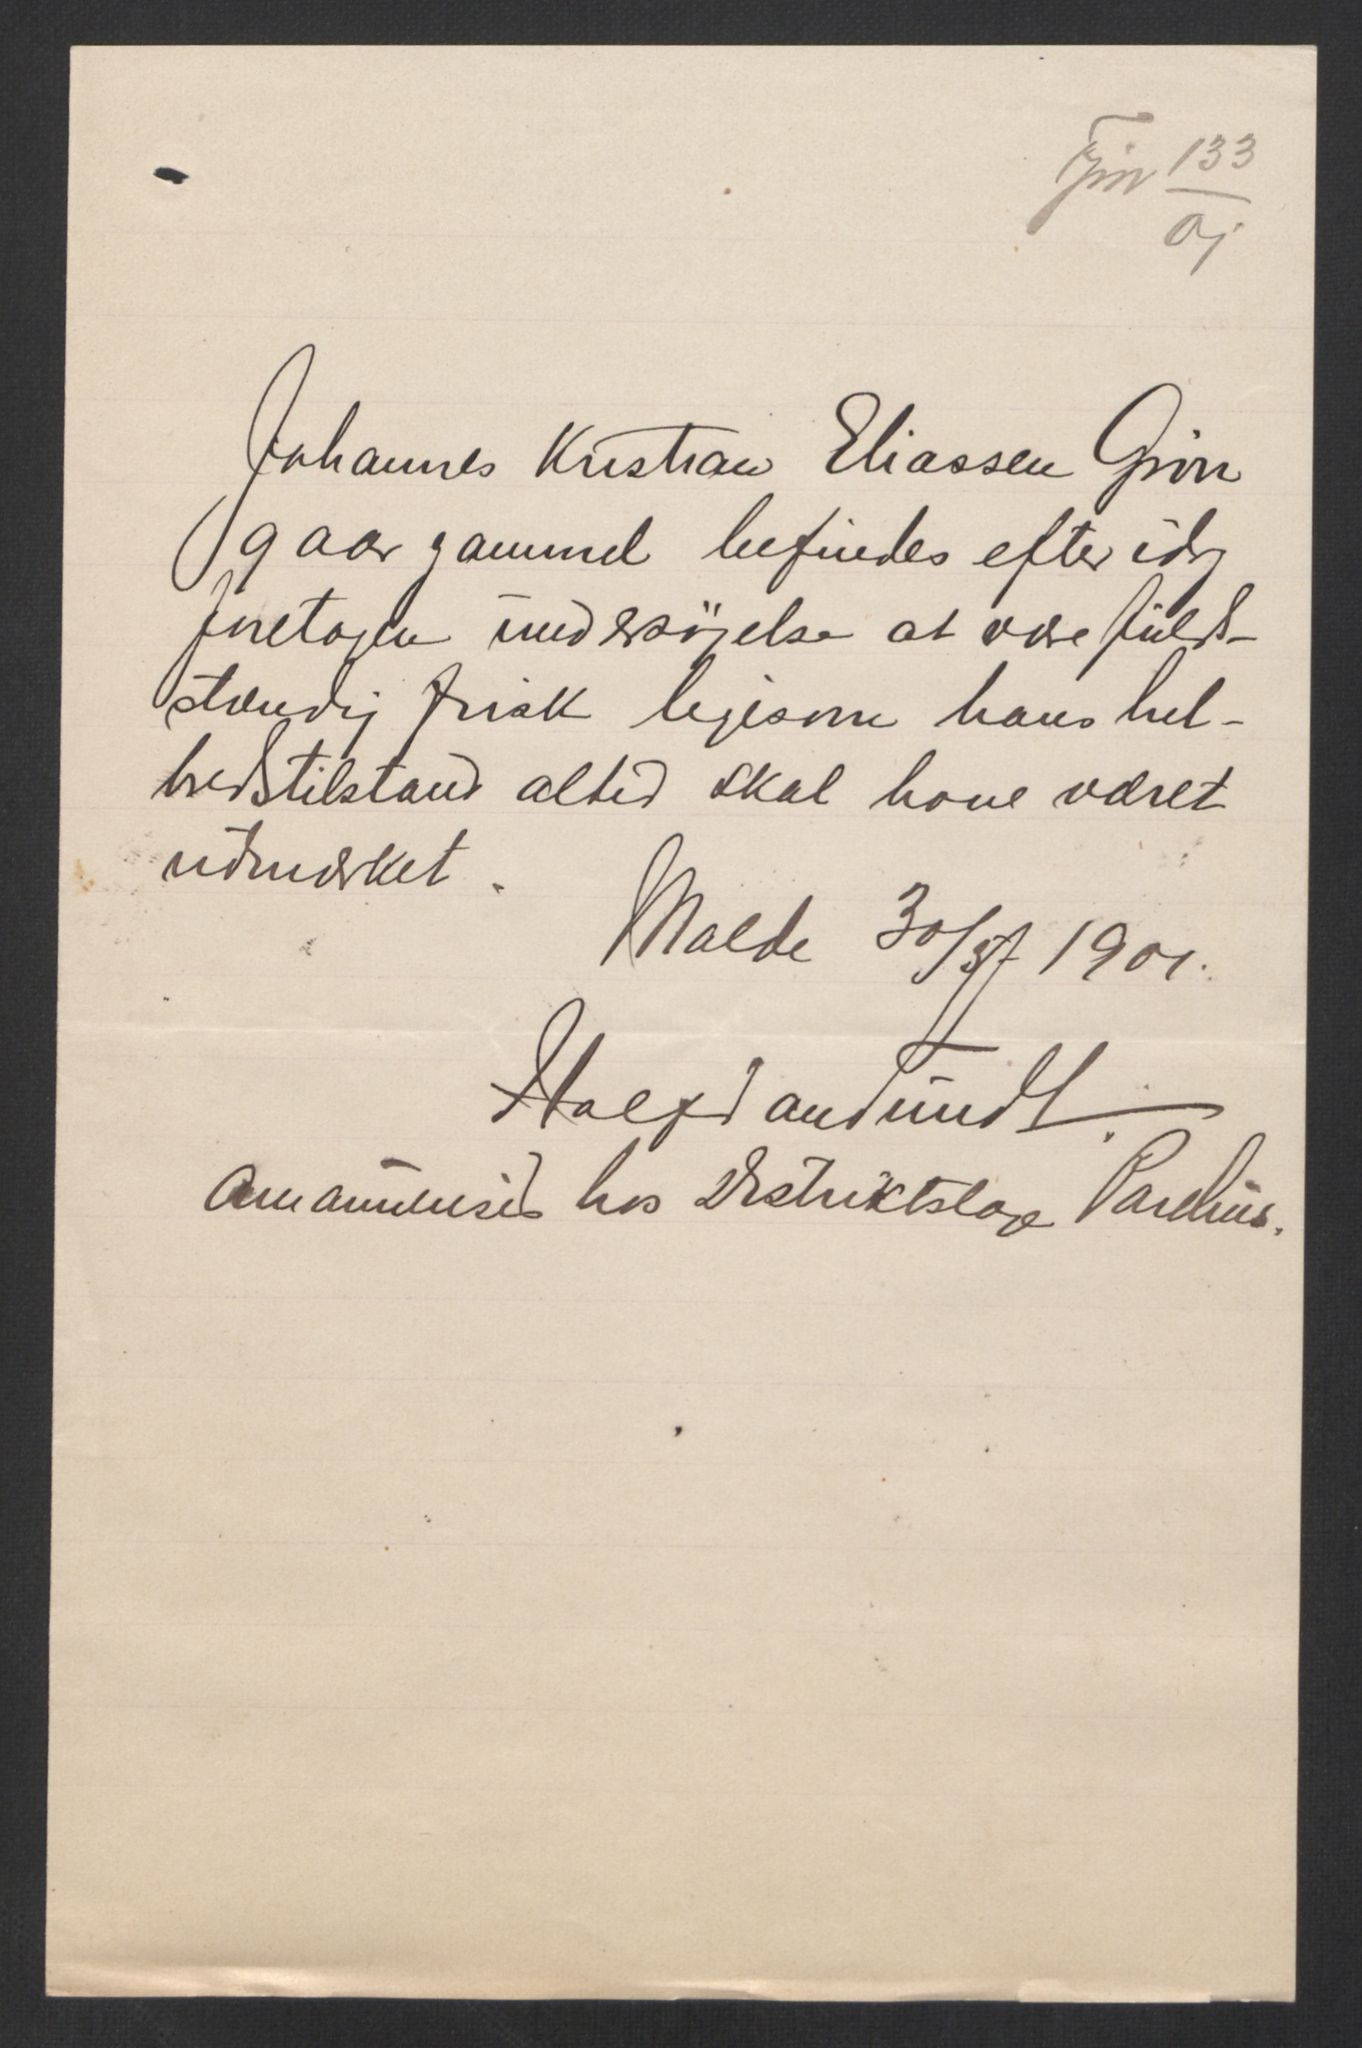 133
01
Johannes Kristian Eliassen Grön
9 aar gammel befindes efter idag
foretagen undersögelse at være fuld-
stændig frisk ligesom hans hel-
bredstilstand altid skal have været
udmærket.
Molde 30/5 1901.
Halfdan Sundt.
Amanuensis hos Distriktslæge Parelius.